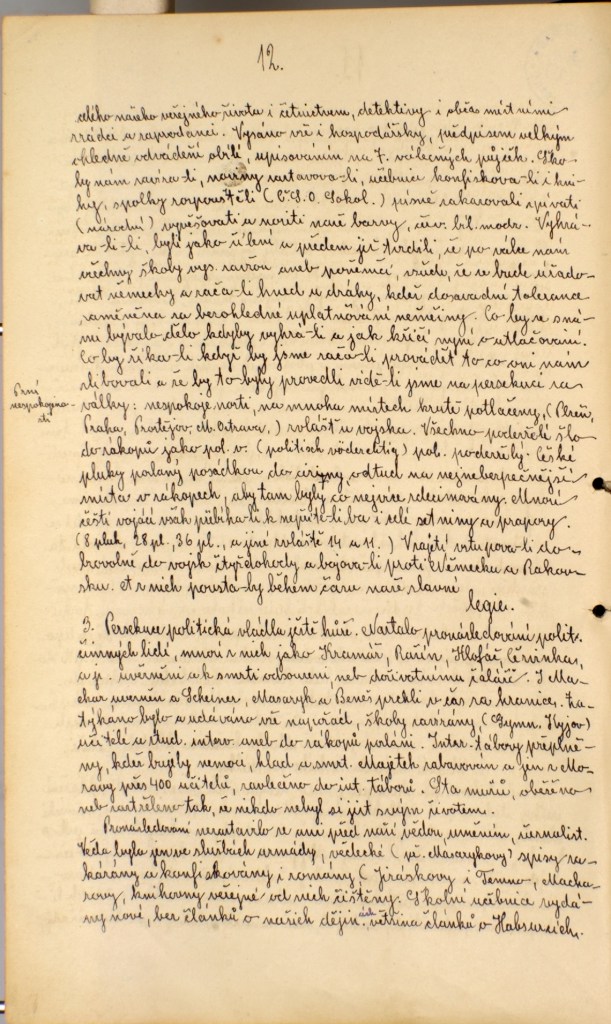 12.
celého našeho veřejného života i četnictvem, detektivy i občas místními
zrádci a zaprodanci. Vysáno vše i hospodářsky, předpisem velkým
ohledně odvádění obilí, upisováním na 7. válečných půjček. Ško-
ly nám zavíra-li, noviny zastavova-li, učebnice konfiskova-li i kni-
hy, spolky rozpouštěli (Č.S.O. Sokol.) písně zakazovali zpívati
(národní) vyvěšovati a nositi naše barvy, červ. bíl. modr. Vyhrá-
va-li-li, byli jako šílení a předem již tvrdili, že po válce nám
všechny školy vys. zavřou aneb poněmčí, všude, že se bude úřado-
vat německy a zača-li hned u dráhy, kdež dosavadní tolerance
zaměněna za bezohledné uplatňování němčiny. Co by se sná-
mi bývalo dělo kdyby vyhrá-li a jak křičí nyní o utlačování.
Co by říka-li když by jsme zača-li prováděti to co oni nám
slibovali a že by to byly provedli vidě-li jsme na persekuci za
války: nespokojenosti, na mnoha místech krutě potlačeny, (Plzeň,
Praha, Prostějov, M. Ostrava,) zvlášť u vojska. Všechno podezřelé šlo
do zákopů jako pol. v. (politisch vöderchtig) pol. podezřelý. České
pluky poslány posádkou do ciziny, odtud na nejnebezpečnější
místa v zákopech, aby tam byly co nejvíce zdecimovány. Mnozí
čeští vojáci však přebíha-li k nepříte-li, ba i celé setniny a prapory.
(8 pluk, 28 pl., 36 pl., a jiné zvláště 14 a 11.) V zajetí vstupova-li do-
brovolně do vojsk čtyřdohody a bojova-li proti Německu a Rakou-
sku. A z nich povsta-ly během času naše slavné
legie.
Prní
nespokojeno-
sti
3. Persekuce politická vládla ještě hůře. Nastalo pronásledování polit.
činných lidí, mnozí z nich jako Kramář, Rašín, Klofáč, Červinka,
a p. uvězněni a k smrti odsouzeni, neb doživotnímu žaláři. I Ma-
char uvězněn a Scheiner, Masaryk a Beneš prchli v čas za hranice. Za-
týkáno bylo a udáváno vše napořád, školy zavírány, (Gymn. Kyjov)
učitelé a stud. interv. aneb do zákopů posláni. Inter. tábory přeplně-
ny, kdež bujely nemoci, hlad a smrt. Majetek zabavován a jen z Mo-
ravy přes 400 učitelů, zavlečeno do int. táborů. Sta mužů, oběšeno
neb zastřeleno tak, že nikdo nebyl si jist svým životem.
Pronásledování nezastavilo se ani před naší vědou, uměním, žurnalist.
Věda byla jen ve službách armády, vědecké (př. Masarykovy) spisy za-
kázány a konfiskovány i romány, (Jiráskovy i Temno, Macha-
rovy, knihovny veřejné od nich čištěny. Školní učebnice vydá-
ny nové, bez článků o našich dějinách většina článků o Habsurcích.